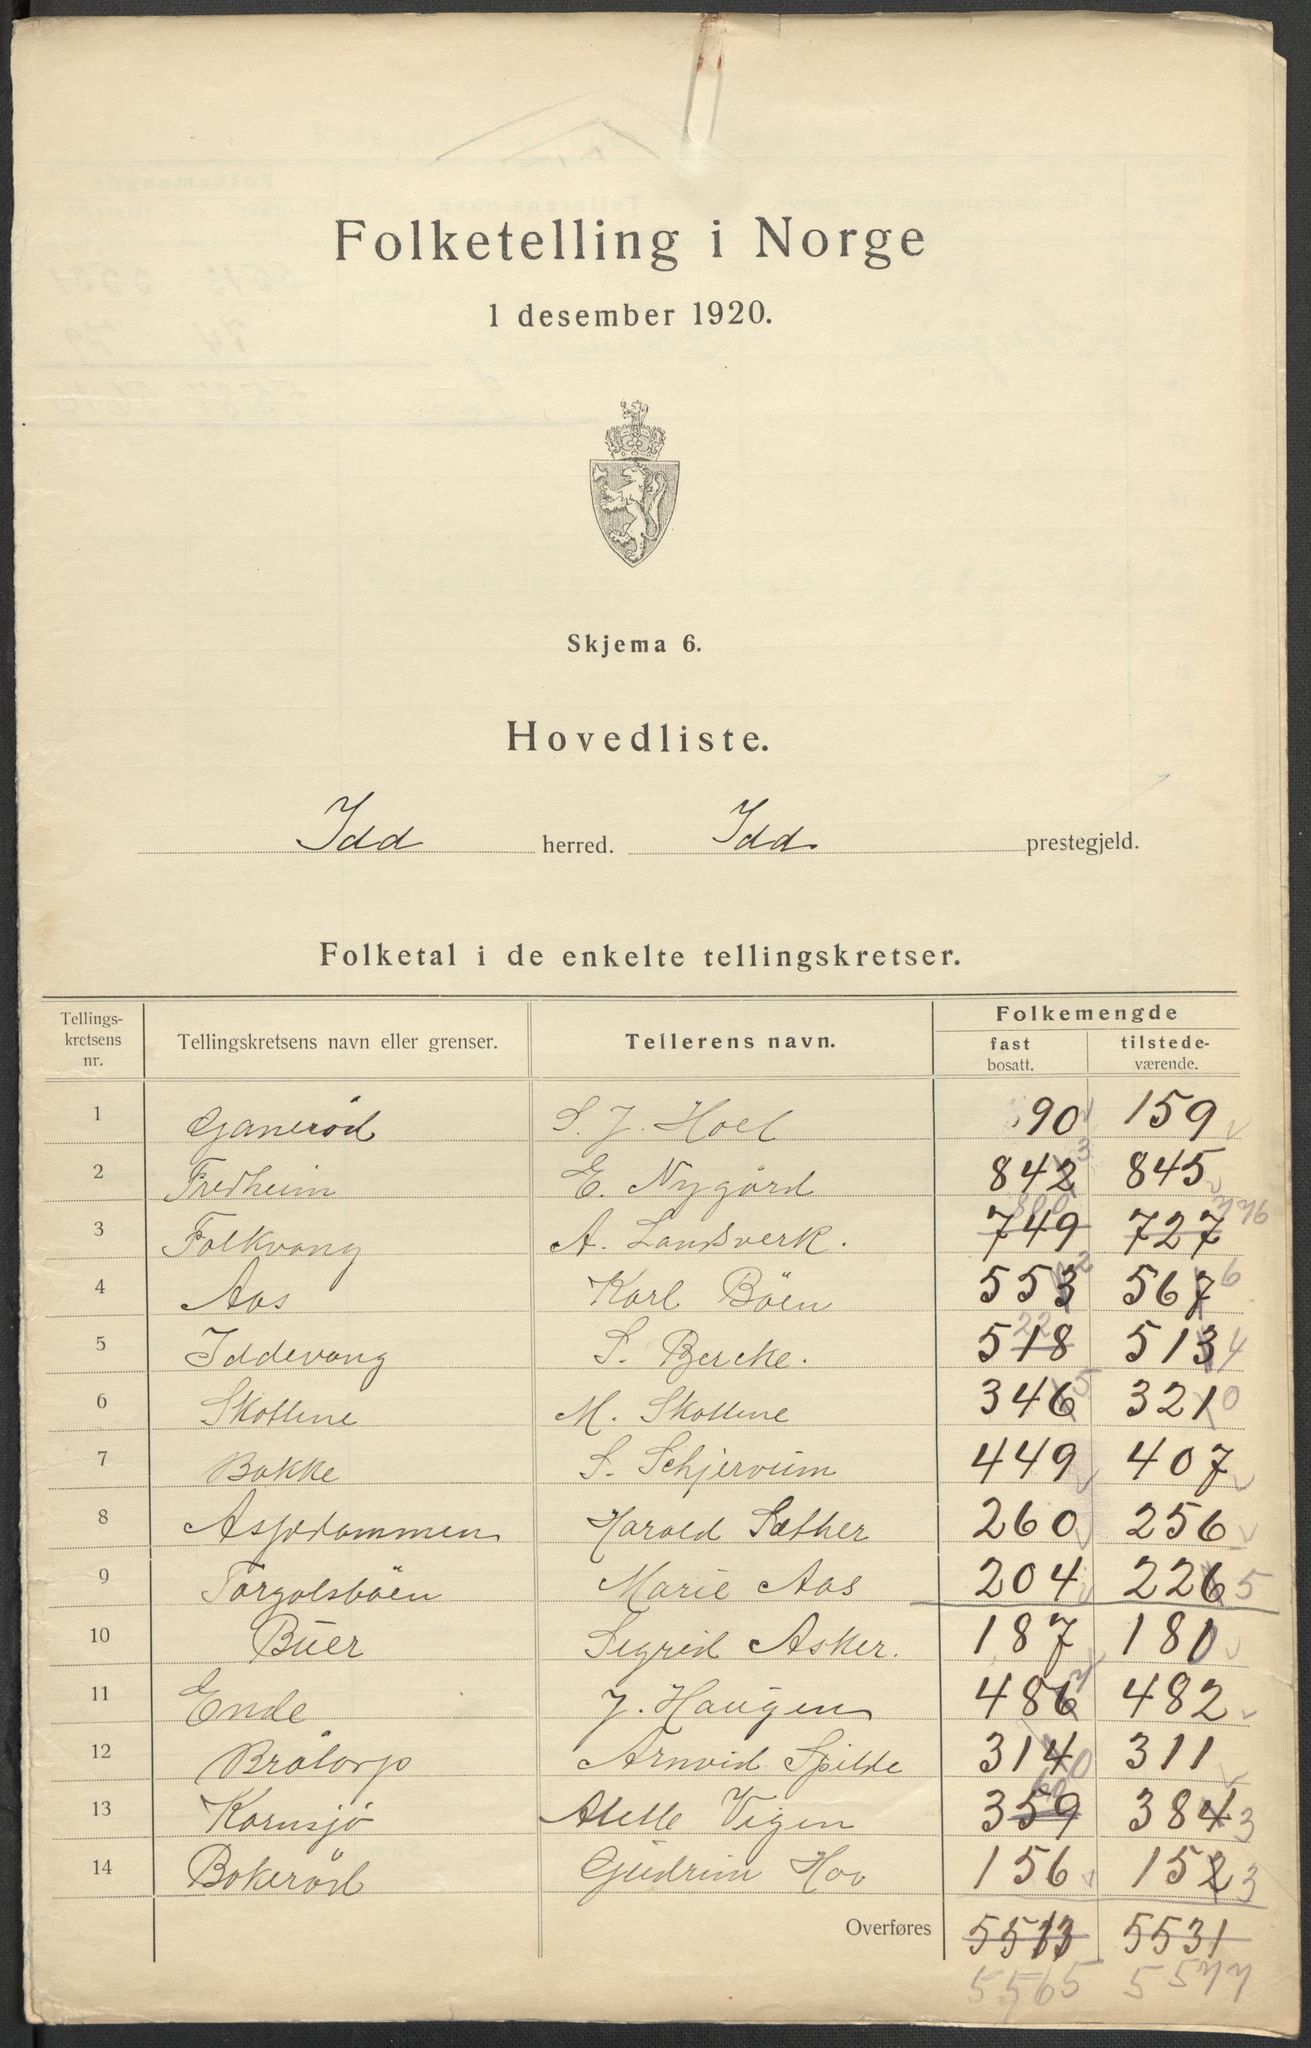 Folketelling i Norge
1 desember 1920.
Skjema 6.
Hovedliste.
Idd herred. Idd prestegjeld.
Folketal i de enkelte tellingskretser.
Tellings-kretsens nr. Tellingskretsens navn eller grenser. Tellerens navn. Folkemengde
fast bosatt. tilstede-værende.
1 Ganerød S. J. Hoel 90 159
2 Fredheim E. Nygård 842 3 845
3 Folkvang A. Landsverk. 749 800 727 776
4 Aas Karl Böen 553 2 567 6
5 Iddevang S. Bercke. 518 22 513 4
6 Skottene M. Skottene 346 5 321 0
7 Bakke S. Schjervum 449 407
8 Aspedammen Harald Sæther 260 256
9 Torgalsbøen Marie Aas 204 226 5
10 Buer Sigrid Asker. 187 180
11 Ende J. Haugen 486 7 482
12 Bråtorp Arnvid Spilde 314 0 311
13 Kornsjø Atelle Vigen 359 60 384 3
14 Bokerød Gudrun Hov 156 152 3
Overføres 5513 5531
5565 5577